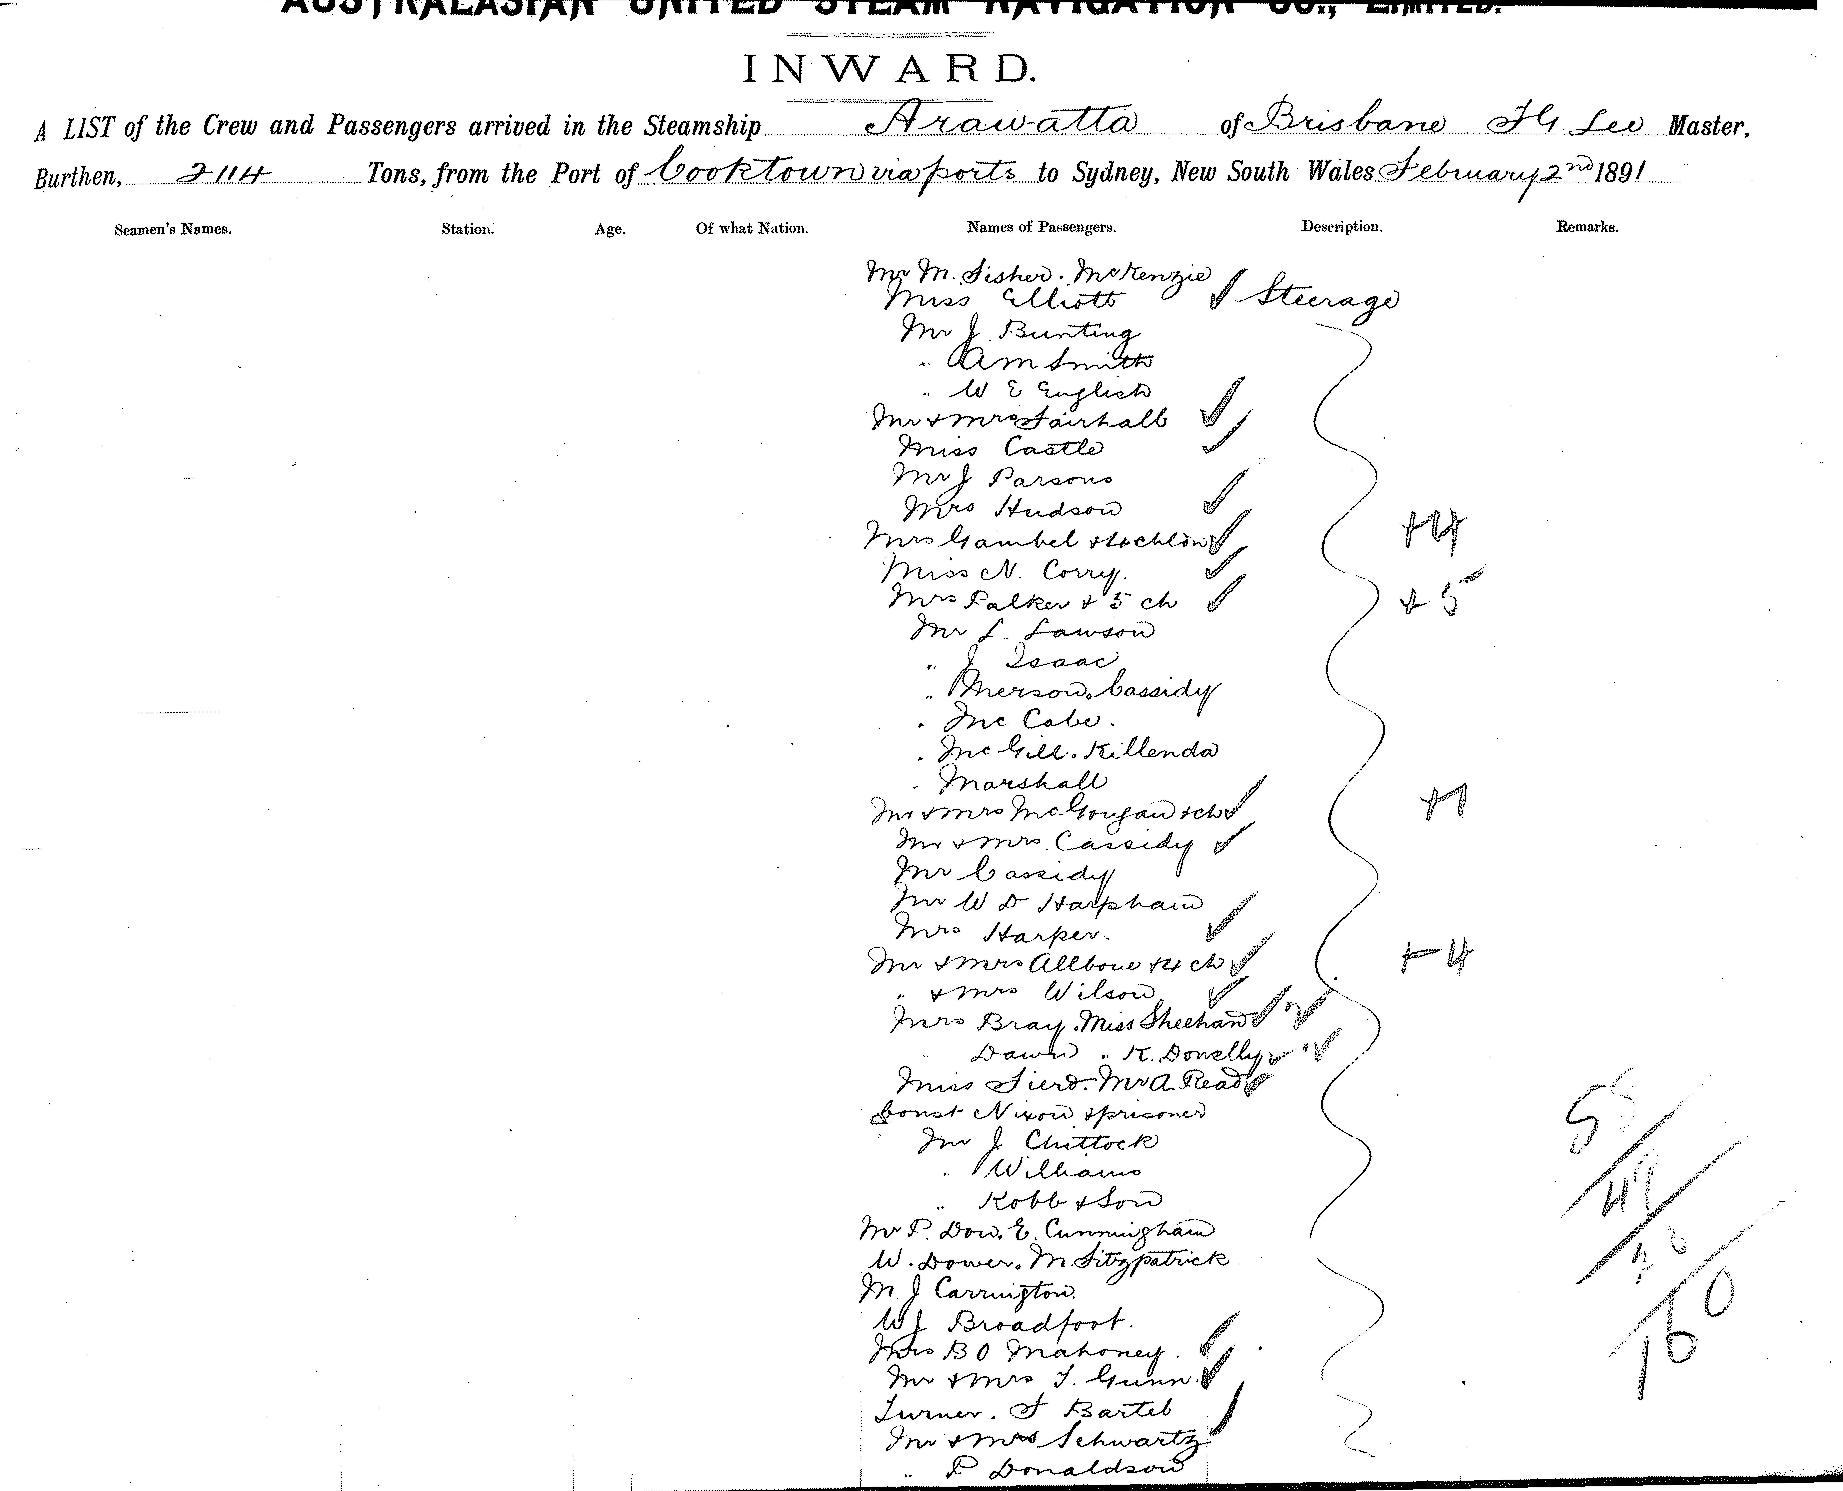 AUSTRALASIAN UNITED STEAM NAVIGATION CO., LIMITED.
INWARD.
A LIST of the Crew and Passengers arrived in the Steamship Arawatta of Brisbane Lee Master,
Burthen, 2114 Tons, from the Port of Cooktown via ports to Sydney, New South Wales February 2nd 1891
Seamen's Names. Station. Age. Of what Nation. Names of Passengers. Description. Remarks.
Mr M. Fisher. McKenzie
Miss Elliott Steerage
Mr J Bunting
" AM Smith
" W E English
Mr & Mrs Fairhall
Miss Castle
Mr J Parsons
Mrs Hudson
Mrs Gambel +4
Miss N. Corry.
Mrs Palker & 5 ch +5
Mr L. Lawson
" J Isaac
" Merson. Cassidy
" Mc Cabe.
" McGill. Killenda
" Marshall
Mr & Mrs McGougan & ch +1
Mr & Mrs Cassidy
Mr Cassidy
Mr W D Harpham
Mrs Harper.
Mr & Mrs Allbone & 4 ch +4
" & Mrs Wilson
Mrs Bray. Miss Sheehan
" K. Donelly
Miss Mr A. Read
Const Nixon & prisoner
Mr J Chittock
" Williams
" Robb & Son
Mr P. Dow. E. Cunningham
W. Dower. M Fitzpatrick
M. J Carrington.
W J Broadfoot.
Mrs B O Mahoney.
Mr & Mrs T. Gunn.
Turner. F Bartel
Mr & Mrs Schwartz
" P Donaldson
160